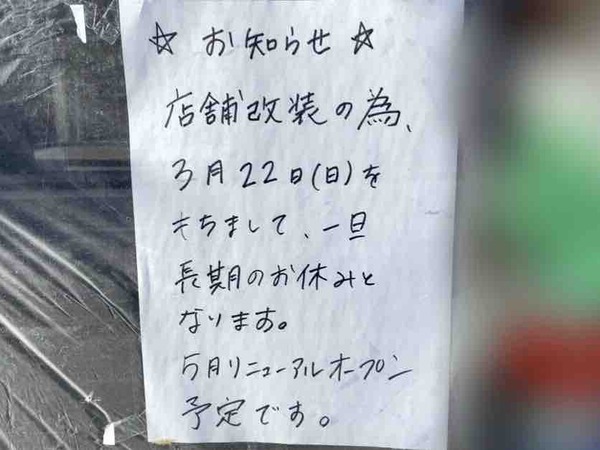 ☆ お知らせ ☆
店舗改装の為、
3月22日(日)を
もちまして、一旦
長期のお休みと
なります。
5月リニューアルオープン
予定です。